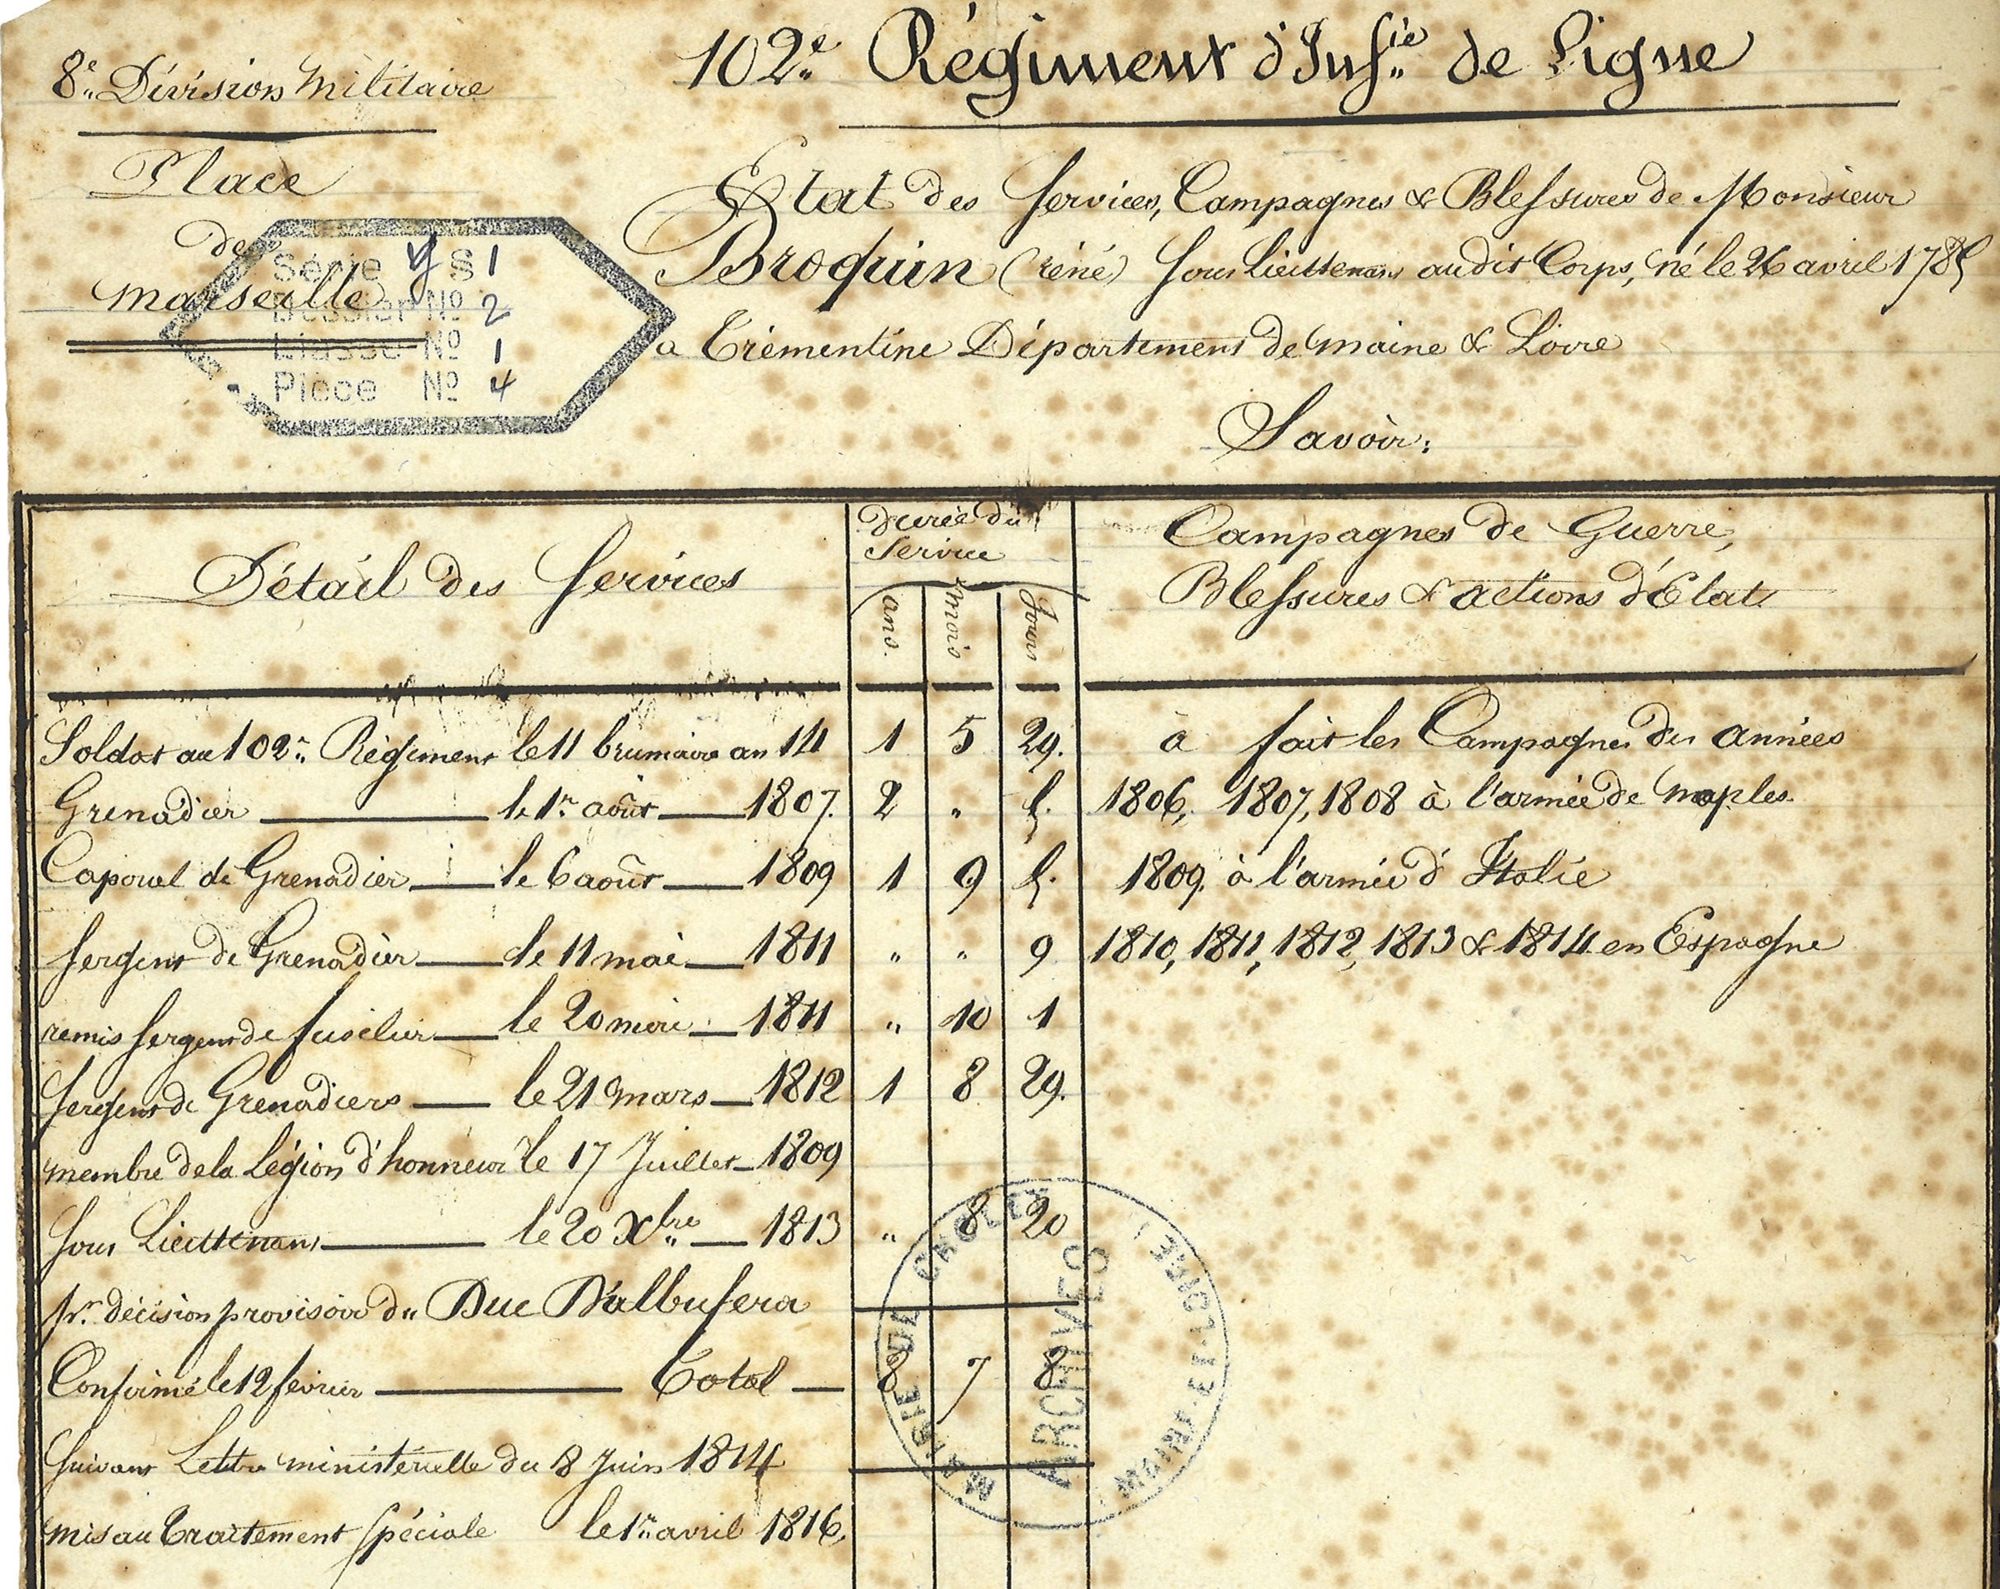 8e Division Militaire
Place
de
Marseille
Série y S 1
Dossier No 2
Liasse No 1
Pièce No 4
102e Régiment d'Infie de Ligne
Etat des Services, Campagnes & Blessures de Monsieur
Broquin (réné) Sous Lieuttenant audit Corps, né le 26 avril 1785
a Trémentine Département de Maine & Loire
Savoir:
Détail des Services
Durée du
Service
ans.
mois
Jours
Campagnes de Guerre,
Blessures & actions d'Eclat
Soldat au 102e Régiment le 11 brumaire an 14 1 5 29. à fait les Campagnes des années
Grenadier le 1er août 1807. 2 " 5. 1806, 1807, 1808 à l'armée de Naples
Caporal de Grenadier le 6 août 1809 1 9 5. 1809 à l'armée d'Italie
Sergent de Grenadier le 11 mai 1811 " " 9 1810, 1811, 1812, 1813 & 1814 en Espagne
remis Sergent de fusilier le 20 mai 1811 " 10 1
Sergent de Grenadiers le 21 mars 1812 1 8 29.
membre de la Légion d'honneur le 17 Juillet 1809
Sous Lieuttenant le 20 Xbre 1813 " 8 20
pr. décision provisoire du Duc D'albufera
Confirmé le 12 février Total 8 7 8
Suivant Lettre ministérielle du 8 Juin 1814
mis au Traitement Spéciale le 1er avril 1816.
MAIRIE DE CHOLET
ARCHIVES
(MAINE-ET-LOIRE)